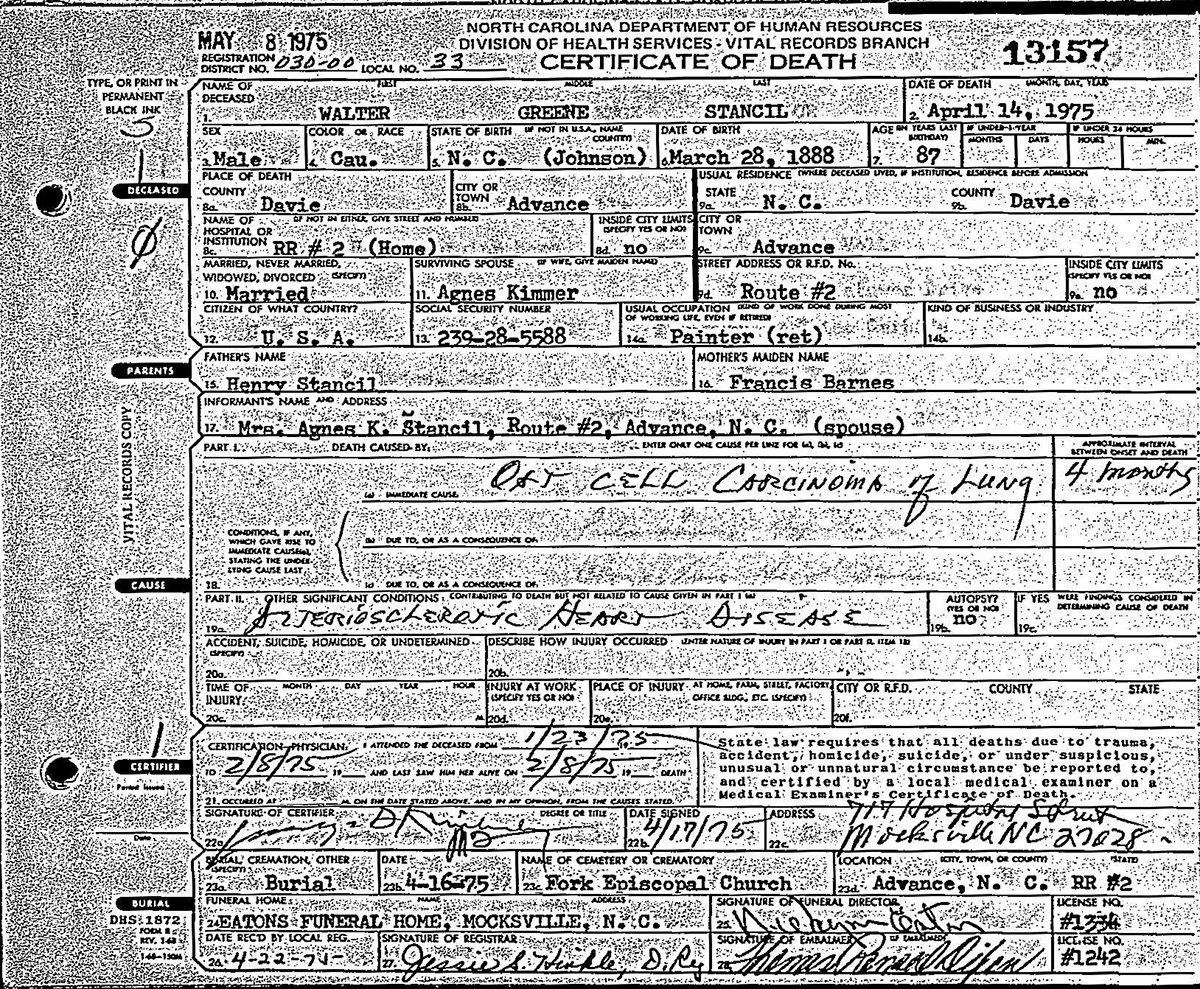 NORTH CAROLINA DEPARTMENT OF HUMAN RESOURCES
DIVISION OF HEALTH SERVICES - VITAL RECORDS BRANCH
CERTIFICATE OF DEATH
MAY 8 1975
13157
REGISTRATION DISTRICT NO. 030-00 LOCAL NO. 33
TYPE, OR PRINT IN
PERMANENT
BLACK INK
NAME OF DECEASED FIRST MIDDLE LAST DATE OF DEATH (MONTH, DAY, YEAR)
1. WALTER GREENE STANCIL 2. April 14, 1975
SEX COLOR OR RACE STATE OF BIRTH (IF NOT IN U.S.A., NAME COUNTRY) DATE OF BIRTH AGE (IN YEARS LAST BIRTHDAY) IF UNDER 1 YEAR IF UNDER 24 HOURS
MONTHS DAYS HOURS MIN.
3. Male 4. Cau. 5. N. C. (Johnson) 6. March 28, 1888 7. 87
DECEASED
PLACE OF DEATH USUAL RESIDENCE (WHERE DECEASED LIVED, IF INSTITUTION, RESIDENCE BEFORE ADMISSION
COUNTY CITY OR TOWN STATE COUNTY
8a. Davie 8b. Advance 9a. N. C. 9b. Davie
NAME OF HOSPITAL OR INSTITUTION (IF NOT IN EITHER, GIVE STREET AND NUMBER) INSIDE CITY LIMITS (SPECIFY YES OR NO) CITY OR TOWN
8c. RR # 2 (Home) 8d. no 9c. Advance
MARRIED, NEVER MARRIED, WIDOWED, DIVORCED (SPECIFY) SURVIVING SPOUSE (IF WIFE, GIVE MAIDEN NAME) STREET ADDRESS OR R.F.D. No. INSIDE CITY LIMITS (SPECIFY YES OR NO)
10. Married 11. Agnes Kimmer 9d. Route #2 9e. no
CITIZEN OF WHAT COUNTRY? SOCIAL SECURITY NUMBER USUAL OCCUPATION (KIND OF WORK DONE DURING MOST OF WORKING LIFE, EVEN IF RETIRED) KIND OF BUSINESS OR INDUSTRY
12. U. S. A. 13. 239-28-5588 14a. Painter (ret) 14b.
PARENTS
FATHER'S NAME MOTHER'S MAIDEN NAME
15. Henry Stancil 16. Francis Barnes
INFORMANT'S NAME AND ADDRESS
17. Mrs. Agnes K. Stancil, Route #2, Advance, N. C. (spouse)
VITAL RECORDS COPY
PART I. DEATH CAUSED BY: ENTER ONLY ONE CAUSE PER LINE FOR (a), (b), (c) APPROXIMATE INTERVAL BETWEEN ONSET AND DEATH
(a) IMMEDIATE CAUSE OAT CELL CARCINOMA of LUNG 4 months
CONDITIONS, IF ANY,
WHICH GAVE RISE TO
IMMEDIATE CAUSE(a),
STATING THE UNDER-
LYING CAUSE LAST.
(b) DUE TO, OR AS A CONSEQUENCE OF:
CAUSE
18. (c) DUE TO, OR AS A CONSEQUENCE OF:
PART II. OTHER SIGNIFICANT CONDITIONS: CONTRIBUTING TO DEATH BUT NOT RELATED TO CAUSE GIVEN IN PART I (a) AUTOPSY? (YES OR NO) IF YES WERE FINDINGS CONSIDERED IN DETERMINING CAUSE OF DEATH
19a. ARTERIOSCLEROTIC HEART DISEASE 19b. no 19c.
ACCIDENT, SUICIDE, HOMICIDE, OR UNDETERMINED (SPECIFY) DESCRIBE HOW INJURY OCCURRED (ENTER NATURE OF INJURY IN PART I OR PART II, ITEM 18)
20a. 20b.
TIME OF INJURY MONTH DAY YEAR HOUR INJURY AT WORK (SPECIFY YES OR NO) PLACE OF INJURY AT HOME, FARM, STREET, FACTORY, OFFICE BLDG., ETC. (SPECIFY) CITY OR R.F.D. COUNTY STATE
20c. M. 20d. 20e. 20f.
CERTIFIER
CERTIFICATION-PHYSICIAN: I ATTENDED THE DECEASED FROM 1/23/75
TO 2/8/75 19 AND LAST SAW HIM HER ALIVE ON 2/8/75 19 DEATH
21. OCCURRED AT M. ON THE DATE STATED ABOVE, AND IN MY OPINION, FROM THE CAUSES STATED.
State law requires that all deaths due to trauma,
accident, homicide, suicide, or under suspicious,
unusual or unnatural circumstance be reported to,
and certified by a local medical examiner on a
Medical Examiner's Certificate of Death.
Permit Issued
Date
SIGNATURE OF CERTIFIER DEGREE OR TITLE DATE SIGNED ADDRESS
22a. MD 22b. 4/17/75 22c. 717 Hospital Street
Mocksville NC 27028
BURIAL, CREMATION, OTHER (SPECIFY) DATE NAME OF CEMETERY OR CREMATORY LOCATION (CITY, TOWN, OR COUNTY) STATE
23a. Burial 23b. 4-16-75 23c. Fork Episcopal Church 23d. Advance, N. C. RR #2
BURIAL
FUNERAL HOME NAME ADDRESS SIGNATURE OF FUNERAL DIRECTOR LICENSE NO.
24. EATONS FUNERAL HOME, MOCKSVILLE, N. C. 25. #1334
DHS 1872
FORM 8
REV. 1-68
DATE REC'D BY LOCAL REG. SIGNATURE OF REGISTRAR SIGNATURE OF EMBALMER LICENSE NO.
26. 4-22-75 27. Jessie S. Hinkle, D. Rg 28. #1242